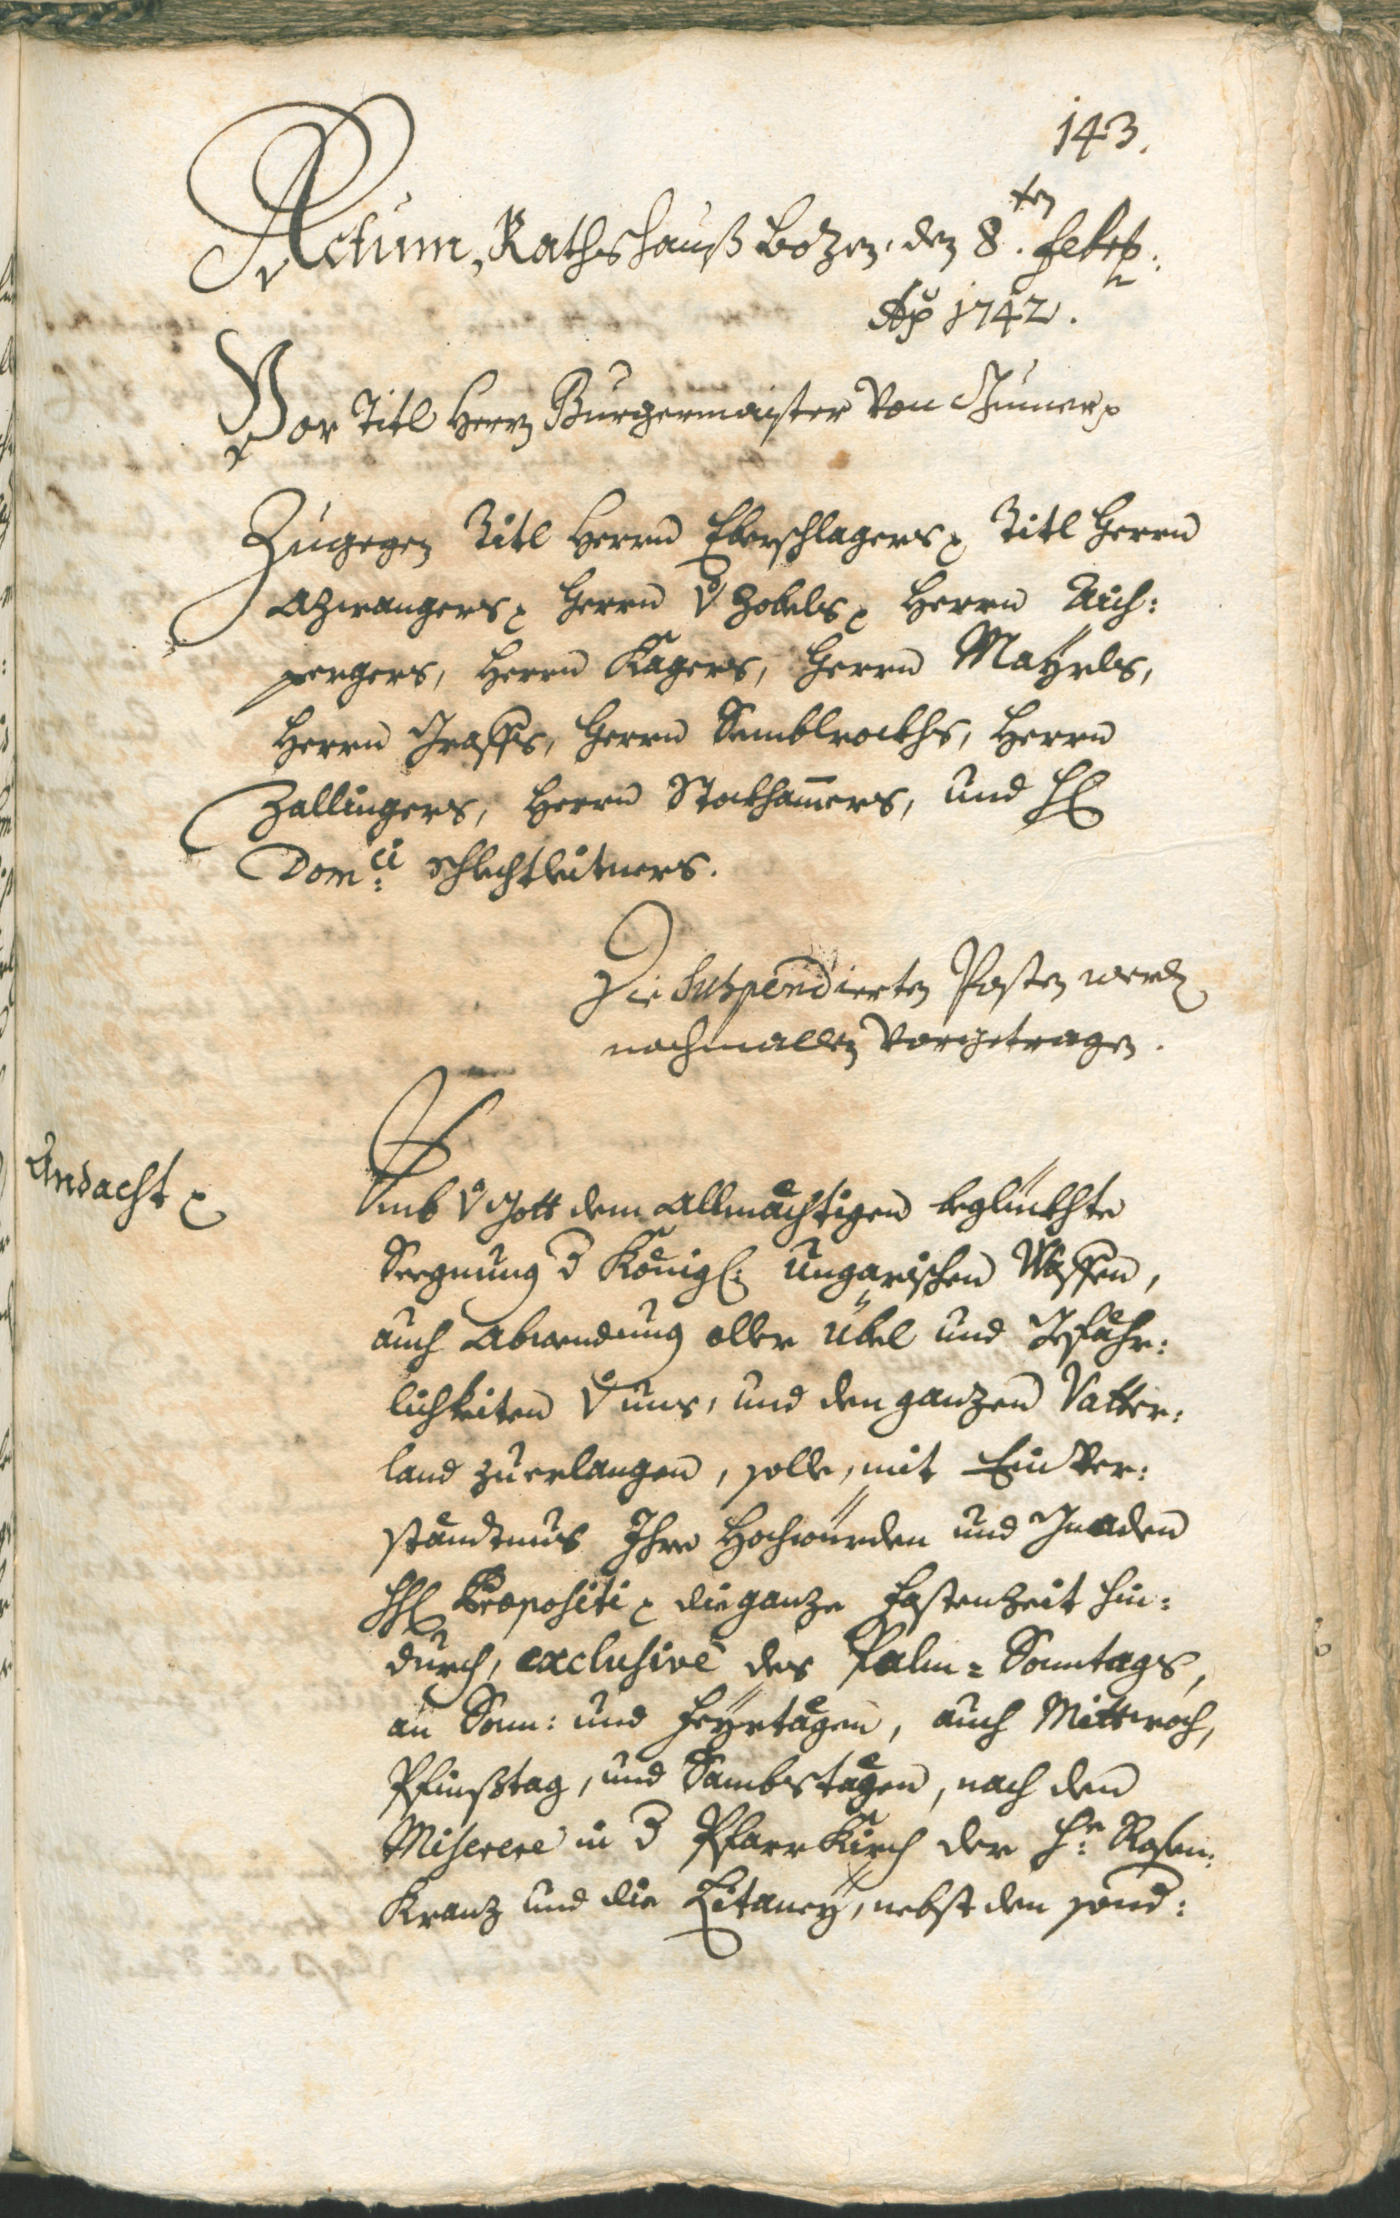 143.
Actum, Rathshauß Bozen, den 8.ten Feb:
Ao 1742.
Vor Titl Herrn Burgermaister von Gumer p
Zugegen Titl Herrn Eberschlagers p Titl Herrn
Azwangers p Herrn v Zobels p Herrn Aich:
pergers, Herrn Kagers, Herrn Mayrls,
Herrn Graffs, Herrn Semblrockhs, Herrn
Zallingers, Herrn Stockhamers, und H
Dom:ci Schlechtleitners.
Die suspendierten Posten werden
nochmallen vorgetragen.
Andacht p
Umb v Gott dem Allmächtigen beglückhte
Seegnung d Königl: Ungarischen Waffen,
auch Abwendung aller übel und Gefähr:
lichkeiten v uns, und den ganzen Vatter:
land zuerlangen, solle, mit Einver:
ständtnus Ihro Hochwürden und Gnaden
H Præpositi p die ganze Fastenzeit hin:
durch, exclusivè des Palm=Sonntags,
an Sonn: und Feyrtägen, auch Mittwoch,
Pfinstag, und Sambstägen, nach dem
Miserere in d PfarrKirch der H: Rosen:
Kranz und die Litaney, nebst den sond: